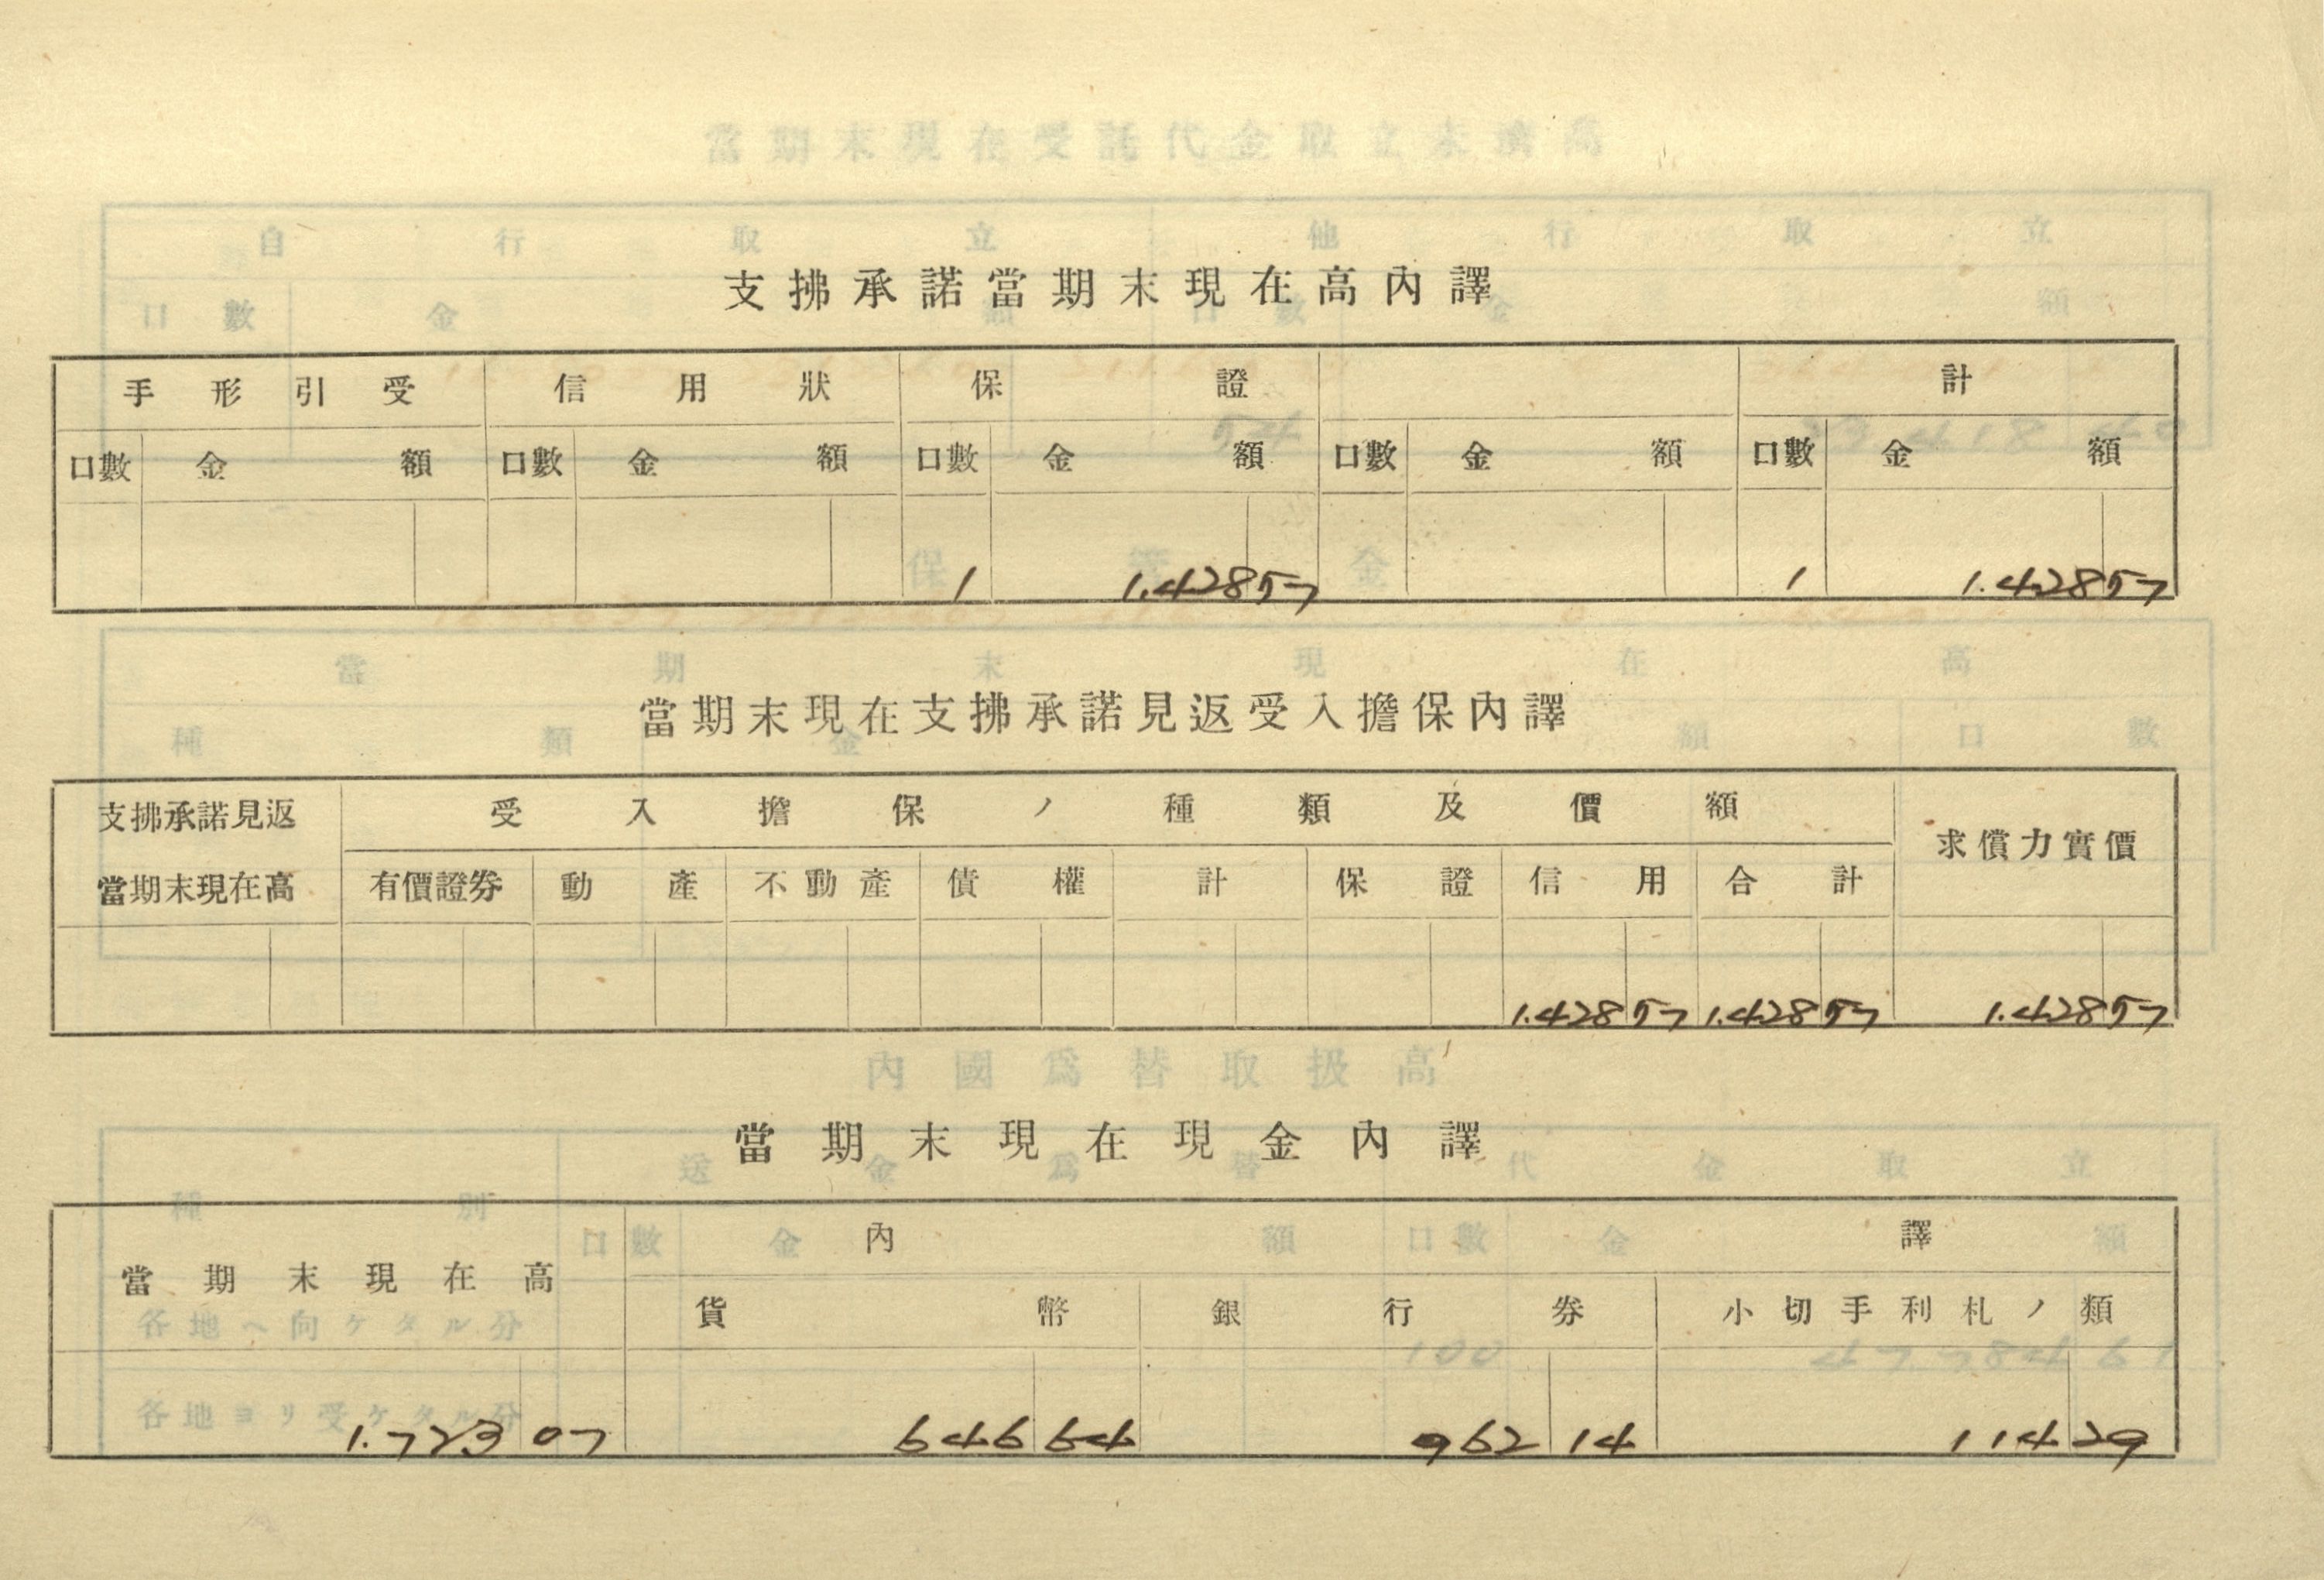 支拂承諾當期末現在高內譯
手形引受 信用狀 保證 計
口數 金額 口數 金額 口數 金額 口數 金額 口數 金額
1 1.428 57 1 1.428 57
當期末現在支拂承諾見返受入擔保內譯
支拂承諾見返 受入擔保ノ種類及價額 求償力實價
當期末現在高 有價證券 動產 不動產 債權 計 保證 信用 合計
1.428 57 1.428 57 1.428 57
當期末現在現金內譯
當期末現在高 內譯
貨幣 銀行券 小切手利札ノ類
1.723 07 646 64 962 14 114 29